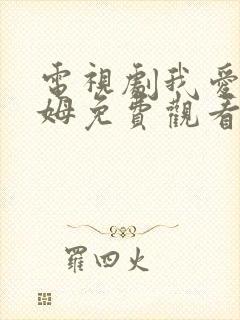 電視劇我愛
姆免費觀看
羅四火